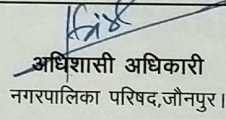 अधिशासी अधिकारी
नगरपालिका परिषद,जौनपुर।